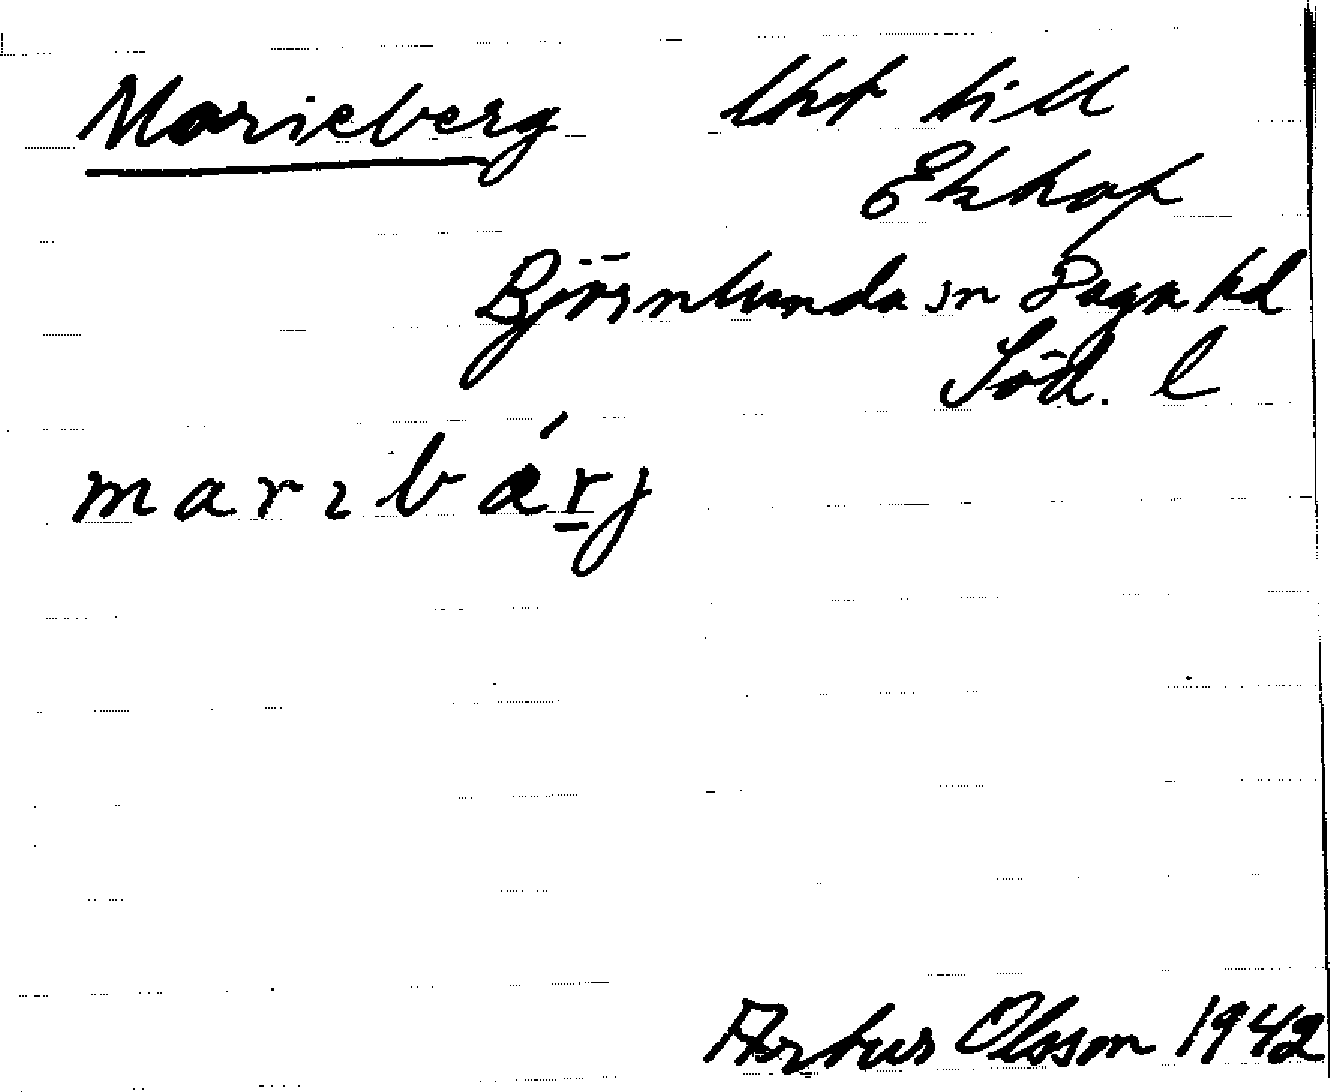 Marieberg lht till
Ekhof
Björnlunda sn Daga hd
Söd. l
marɪbárj
Artur Olsson 1942